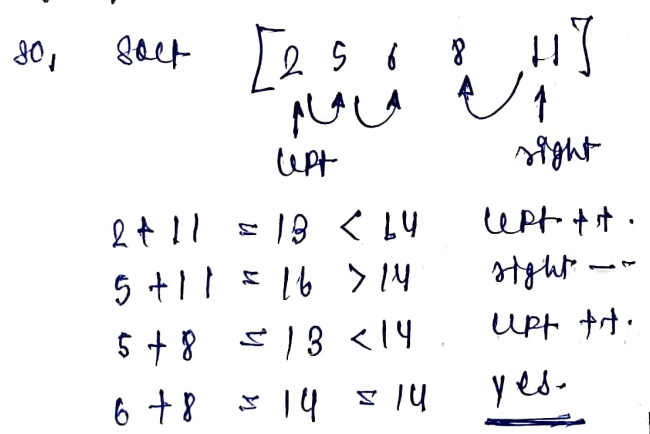 so, sort [2 5 6 8 11]
left right
2 + 11 = 13 < 14 left ++.
5 + 11 = 16 > 14 right --
5 + 8 = 13 < 14 left ++.
6 + 8 = 14 = 14 yes.